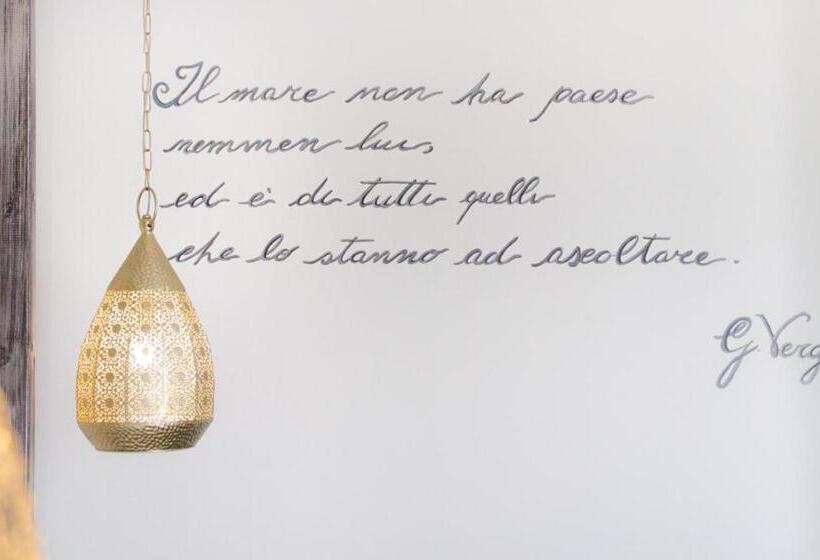 Il mare non ha paese
nemmen lui,
ed è di tutti quelli
che lo stanno ad ascoltare.
G. Verg